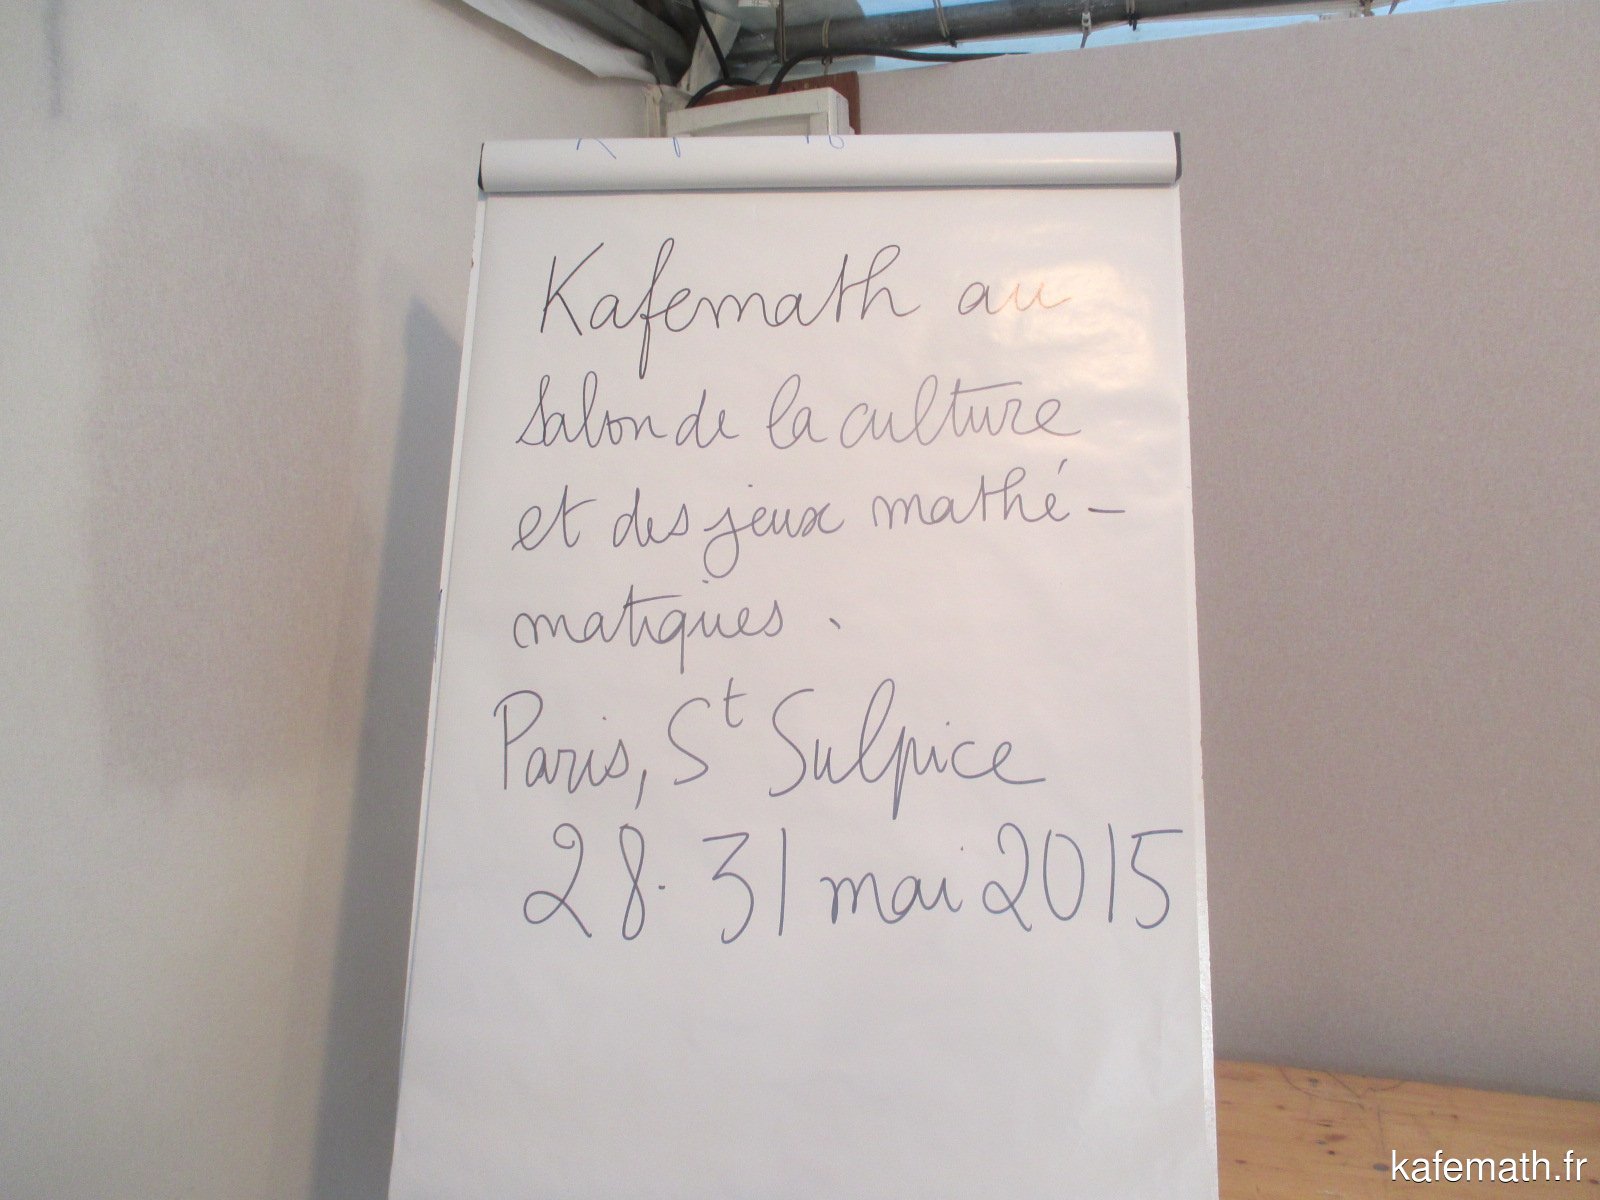 Kafemath au
Salon de la culture
et des jeux mathé-
matiques.
Paris, St Sulpice
28-31 mai 2015
kafemath.fr